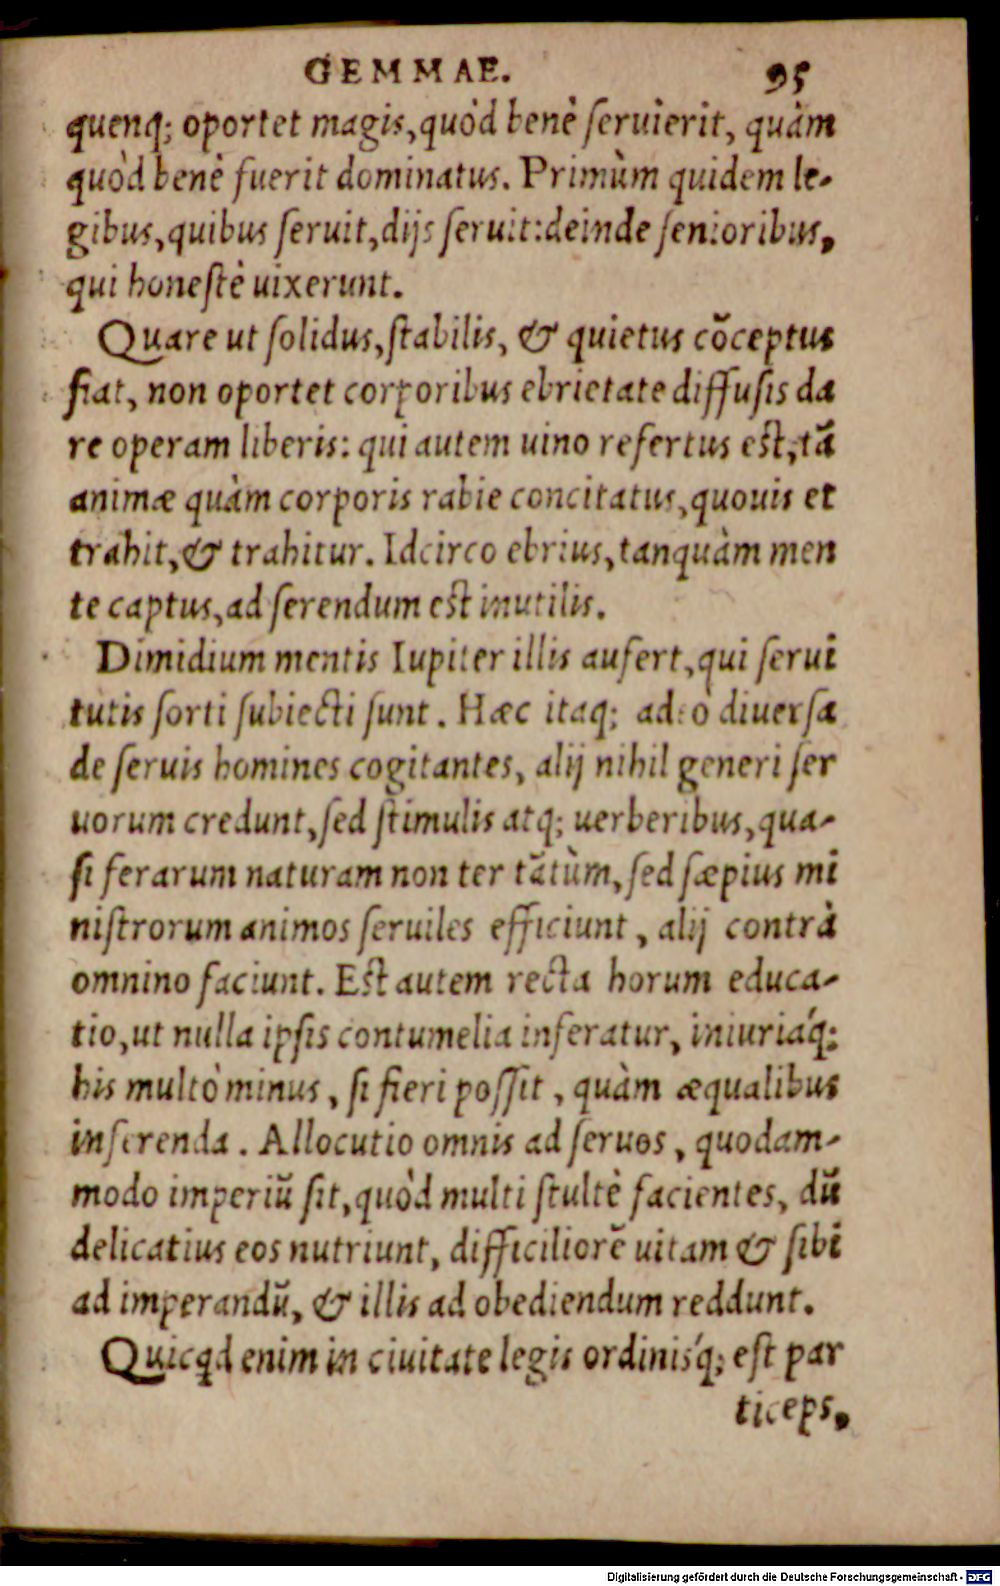 GEMMAE. 95
quenq; oportet magis, quòd benè seruierit, quàm
quòd benè fuerit dominatus. Primùm quidem le-
gibus, quibus seruit, dijs seruit: deinde senioribus,
qui honestè uixerunt.
Quare ut solidus, stabilis, & quietus cōceptus
fiat, non oportet corporibus ebrietate diffusis da
re operam liberis: qui autem uino refertus est, tā
animæ quàm corporis rabie concitatus, quouis et
trahit, & trahitur. Idcirco ebrius, tanquàm men
te captus, ad serendum est inutilis.
Dimidium mentis Iupiter illis aufert, qui serui
tutis sorti subiecti sunt. Hæc itaq; adeo diuersa
de seruis homines cogitantes, alij nihil generi ser
uorum credunt, sed stimulis atq; uerberibus, qua-
si ferarum naturam non ter tātùm, sed sæpius mi
nistrorum animos seruiles efficiunt, alij contrà
omnino faciunt. Est autem recta horum educa-
tio, ut nulla ipsis contumelia inferatur, iniuriáq;
his multò minus, si fieri possit, quàm æqualibus
inferenda. Allocutio omnis ad seruos, quodam-
modo imperiū sit, quòd multi stultè facientes, dū
delicatius eos nutriunt, difficiliorē uitam & sibi
ad imperandū, & illis ad obediendum reddunt.
Quicqd enim in ciuitate legis ordinisq́; est par
ticeps,
Digitalisierung gefördert durch die Deutsche Forschungsgemeinschaft - DFG